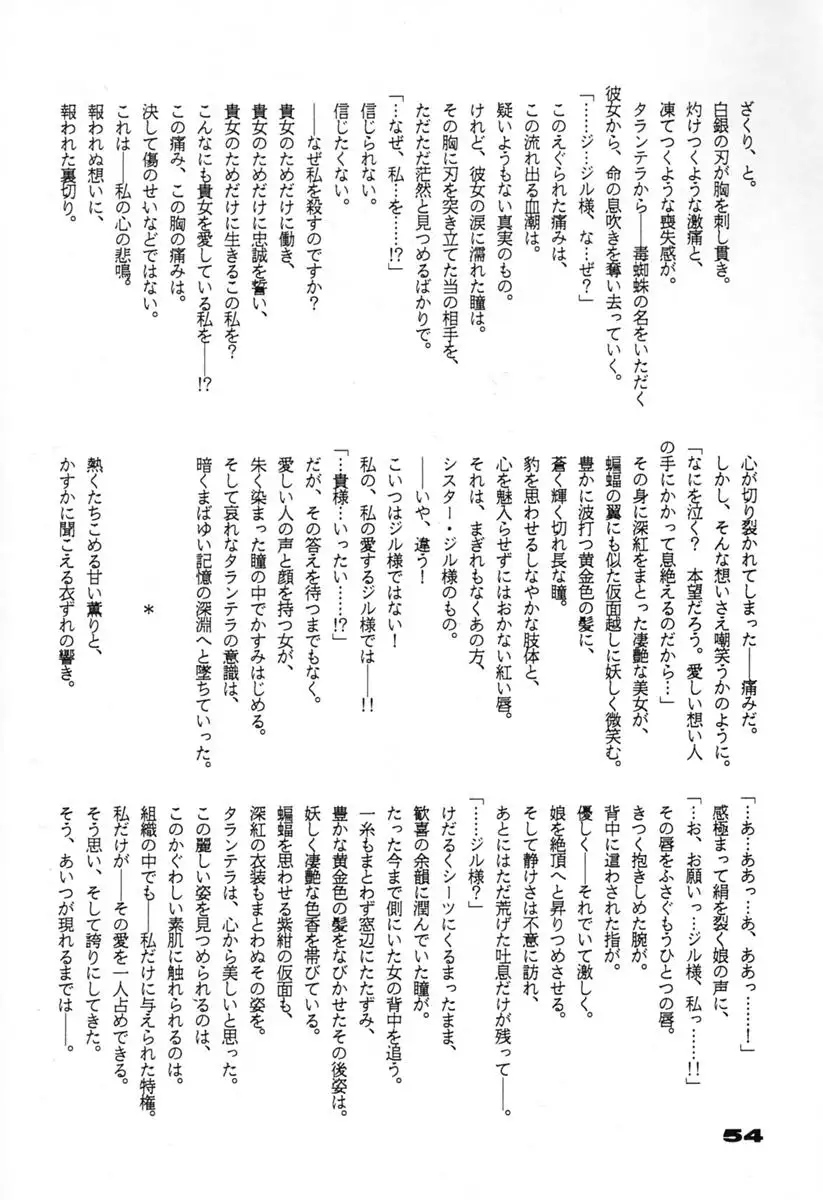 ざくり、と。
白銀の刃が胸を刺し貫き。
灼けつくような激痛と、
凍てつくような喪失感が。
タランテラから——毒蜘蛛の名をいただく
彼女から、命の息吹きを奪い去っていく。
「……ジ…ジル様、な…ぜ?」
このえぐられた痛みは、
この流れ出る血潮は。
疑いようもない真実のもの。
けれど、彼女の涙に濡れた瞳は。
その胸に刃を突き立てた当の相手を、
ただただ茫然と見つめるばかりで。
「…なぜ、私…を……!?」
信じられない。
信じたくない。
——なぜ私を殺すのですか?
貴女のためだけに働き、
貴女のためだけに忠誠を誓い、
貴女のためだけに生きるこの私を?
こんなにも貴女を愛している私を——!?
この痛み、この胸の痛みは。
決して傷のせいなどではない。
これは——私の心の悲鳴。
報われぬ想いに、
報われた裏切り。
心が切り裂かれてしまった——痛みだ。
しかし、そんな想いさえ嘲笑うかのように。
「なにを泣く? 本望だろう。愛しい想い人
の手にかかって息絶えるのだから…」
その身に深紅をまとった凄艶な美女が、
蝙蝠の翼にも似た仮面越しに妖しく微笑む。
豊かに波打つ黄金色の髪に、
蒼く輝く切れ長な瞳。
豹を思わせるしなやかな肢体と、
心を魅入らせずにはおかない紅い唇。
それは、まぎれもなくあの方、
シスター・ジル様のもの。
——いや、違う!
こいつはジル様ではない!
私の、私の愛するジル様では——!!
「…貴様…いったい……!?」
だが、その答えを待つまでもなく。
愛しい人の声と顔を持つ女が、
朱く染まった瞳の中でかすみはじめる。
そして哀れなタランテラの意識は、
暗くまばゆい記憶の深淵へと墜ちていった。
*
熱くたちこめる甘い薫りと、
かすかに聞こえる衣ずれの響き。
「…あ…ああっ…あ、ああっ………!」
感極まって絹を裂く娘の声に、
「…お、お願いっ…ジル様、私っ……!!
その唇をふさぐもうひとつの唇。
きつく抱きしめた腕が。
背中に這わされた指が。
優しく——それでいて激しく。
娘を絶頂へと昇りつめさせる。
そして静けさは不意に訪れ、
あとにはただ荒げた吐息だけが残って——。
「……ジル様?」
けだるくシーツにくるまったまま、
歓喜の余韻に潤んでいた瞳が。
たった今まで側にいた女の背中を追う。
一糸もまとわず窓辺にたたずみ、
豊かな黄金色の髪をなびかせたその後姿は。
妖しく凄艶な色香を帯びている。
蝙蝠を思わせる紫紺の仮面も、
深紅の衣装もまとわぬその姿を。
タランテラは、心から美しいと思った。
この麗しい姿を見つめられるのは、
このかぐわしい素肌に触れられるのは。
組織の中でも——私だけに与えられた特権。
私だけが——その愛を一人占めできる。
そう思い、そして誇りにしてきた。
そう、あいつが現れるまでは——。
54